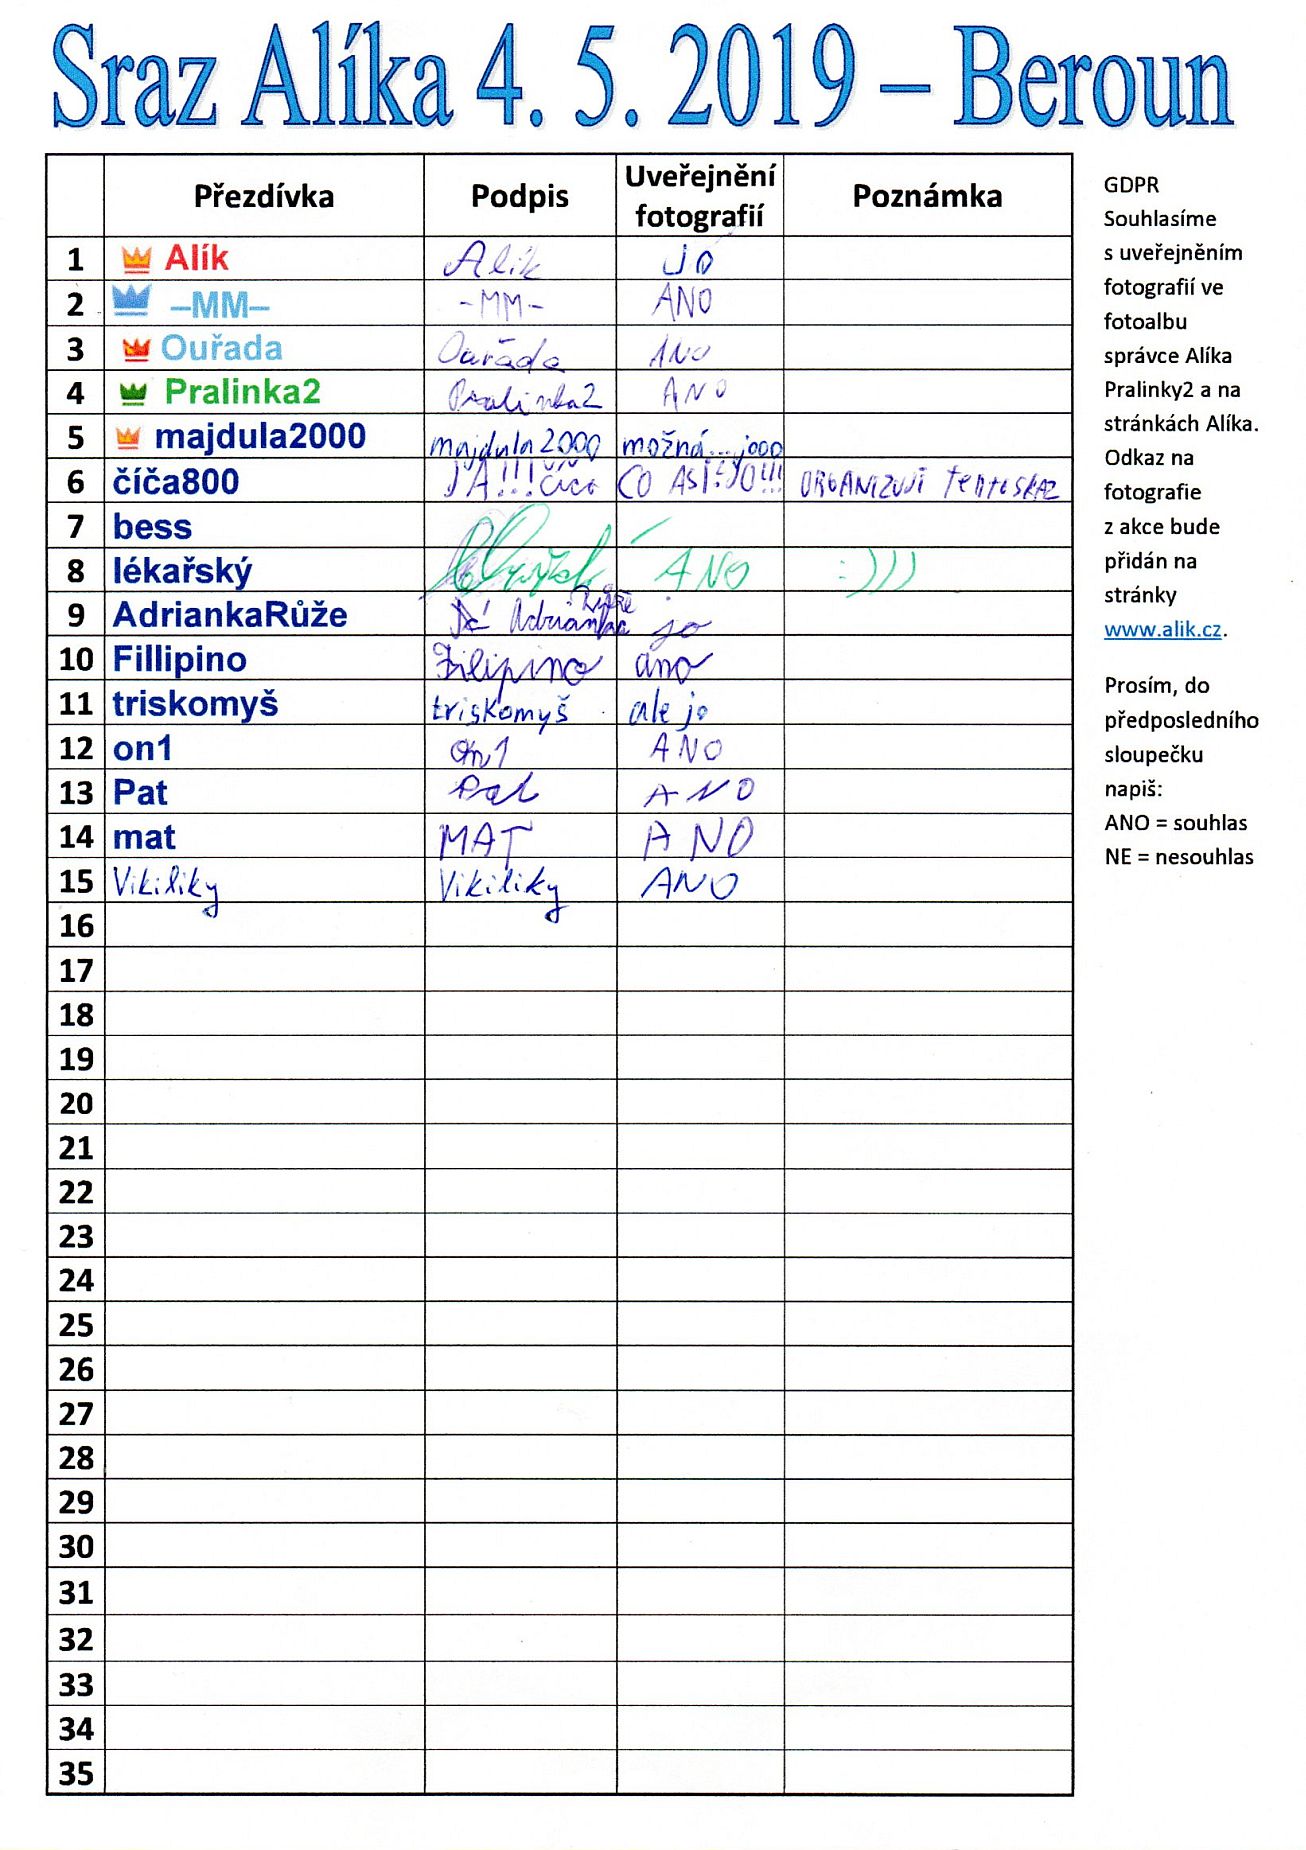 Sraz Alíka 4. 5. 2019 – Beroun
Přezdívka Podpis Uveřejnění fotografií Poznámka
1 Alík Alík jo
2 –MM– -MM- ANO
3 Ouřada Ouřada ANO
4 Pralinka2 Pralinka2 ANO
5 majdula2000 majdula2000 možná...jooo
6 číča800 JÁ!!! číča CO ASI?JO!!! ORGANIZUJI TENTO SRAZ
7 bess
8 lékařský ANO :)))
9 AdriankaRůže Já Adrianka Růže jo
10 Fillipino Filipino ano
11 triskomyš triskomyš ale jo
12 on1 on1 ANO
13 Pat Pat ANO
14 mat MAT ANO
15 Vikiliky Vikiliky ANO
16
17
18
19
20
21
22
23
24
25
26
27
28
29
30
31
32
33
34
35
GDPR
Souhlasíme
s uveřejněním
fotografií ve
fotoalbu
správce Alíka
Pralinky2 a na
stránkách Alíka.
Odkaz na
fotografie
z akce bude
přidán na
stránky
www.alik.cz.
Prosím, do
předposledního
sloupečku
napiš:
ANO = souhlas
NE = nesouhlas